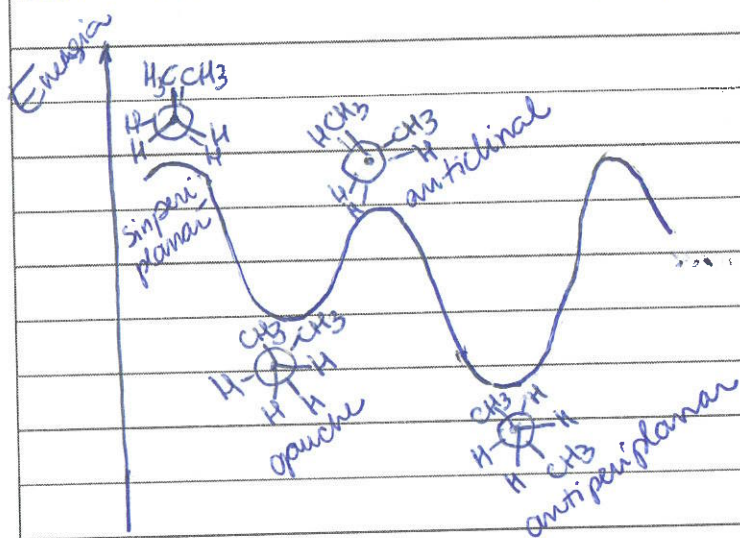 Energia
H3CCH3
H H
H H
sinperi
planar
HCH3
CH3
H
H
H
anticlinal
CH3 CH3
H H
H H
gauche
CH3 H
H H
H CH3
antiperiplanar